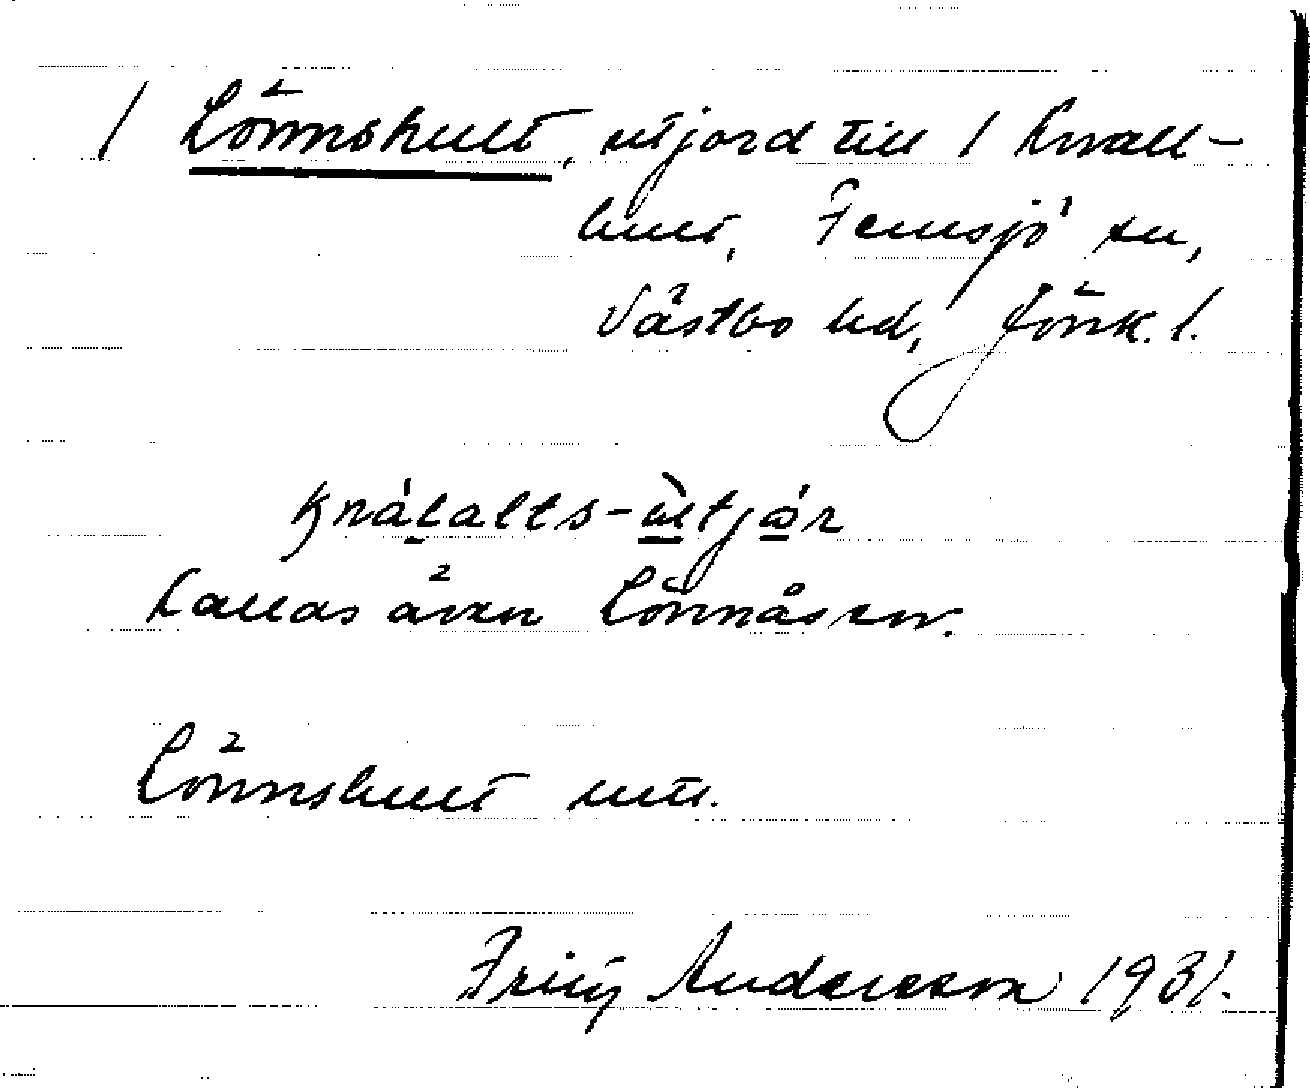 1 Lönnshult, utjord till 1 Knall-
hult, Femsjö sn,
Västbo hd, Jönk. l.
knálalts-ùtjór
kallas även Lönnåsen.
Lönnshult mtl.
Frithj Andersson 1931.